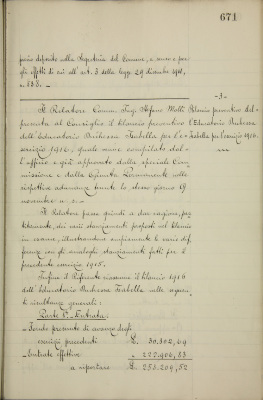 671
previo deposito nella Segreteria del Comune, a senso e per
gli effetti di cui all'art. 3 della legge 29 dicembre 1901,
n. 538. —
— 3 —
Il Relatore Comm. Ing. Stefano Molli
presenta al Consiglio il bilancio preventivo
dell'Educatorio Duchessa Isabella per l'e-
sercizio 1916, quale venne compilato dal-
l'ufficio e già approvato dalla speciale Com-
missione e dalla Giunta
rispettive adunanze tenute lo stesso giorno 9
novembre u. s. —
Bilancio preventivo del-
l'Educatorio Duchessa
Isabella per l'esercizio 1916.
Il Relatore passa quindi a dar ragione, par-
titamente, dei varii stanziamenti proposti nel bilancio
in esame, illustrandone ampiamente le varie dif-
ferenze con gli analoghi stanziamenti fatti per il
precedente esercizio 1915. —
Infine il Riferente riassume il bilancio 1916
dell'Educatorio Duchessa Isabella nelle seguen-
ti risultanze generali:
Parte 1ª Entrata:
— Fondo presunto di avanzo degli
esercizi precedenti £. 30.302,69
— Entrate effettive " 222.906,83
a riportare £. 253.209,52